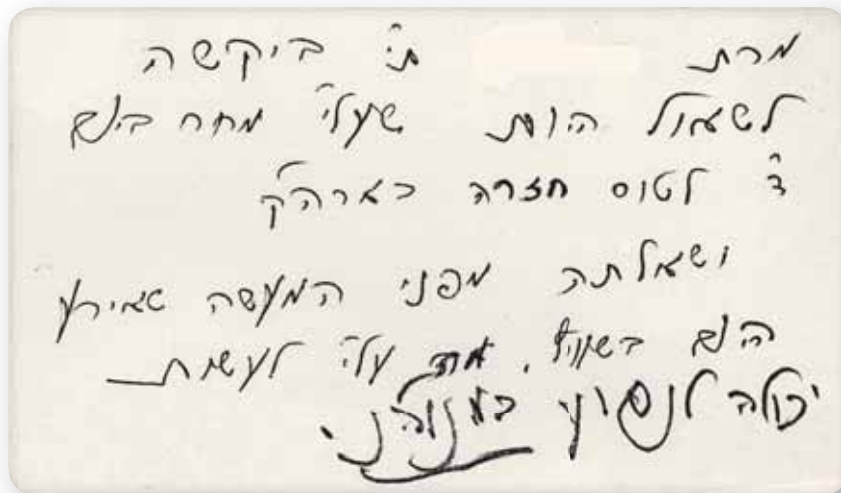 מרת תי' ביקשה
לשאול היות שעלי' מחר ביום
ד' לטוס חזרה בארה"ק
ושאלתה מפני המעשה שאירע
היום מה עלי' לעשות
יכולה לנסוע